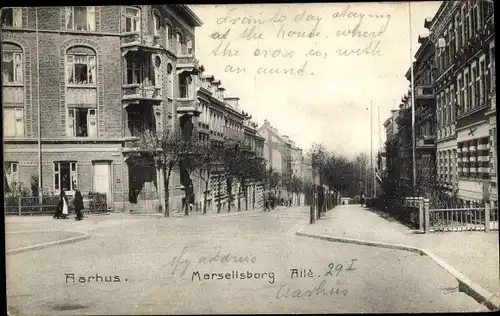 I ran to day staying
at the house, where
the cross is, with
an aunt.
My address
Aarhus. Marselisborg Allé. 29 I
Aarhus